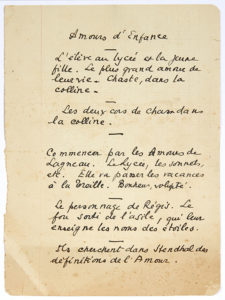 Amours d'Enfance
L'élève au lycée et la jeune
fille. Le plus grand amour de
leur vie. Chaste, dans la
colline.
Les deux cors de chasse dans
la colline.
Commencer par les Amours de
Lagneau. Le Lycée, les sonnets,
etc. Elle va passer les vacances
à la Treille. Bonheur, volupté.
Le personnage de Régis. Le
fou sorti de l'asile, qui leur
enseigne les noms des étoiles.
Ils cherchent dans Stendhal des
définitions de l'Amour.